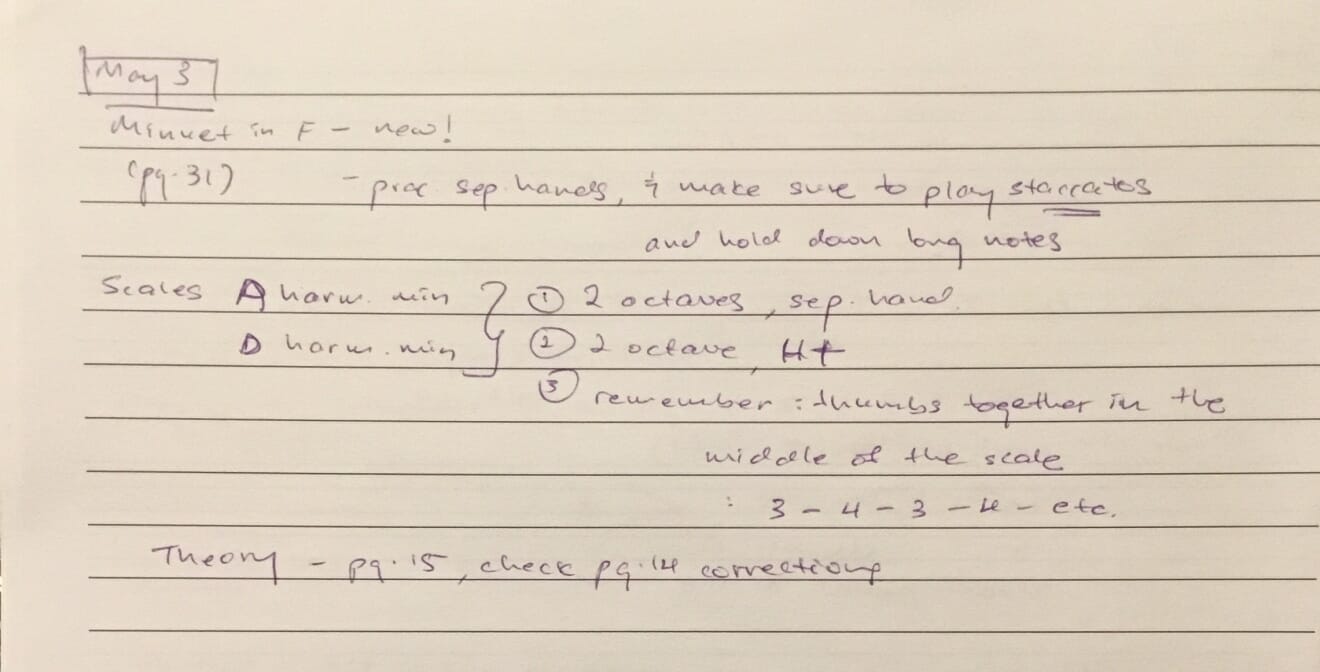 May 3
Minuet in F - new!
(pg. 31) - prac. sep. hands, & make sure to play staccatos
and hold down long notes
Scales A harm. min } ① 2 octaves, sep. hand.
D harm. min ② 2 octave, HT
③ remember : thumbs together in the
middle of the scale
: 3 - 4 - 3 - 4 - etc.
Theory - pg. 15, check pg. 14 corrections